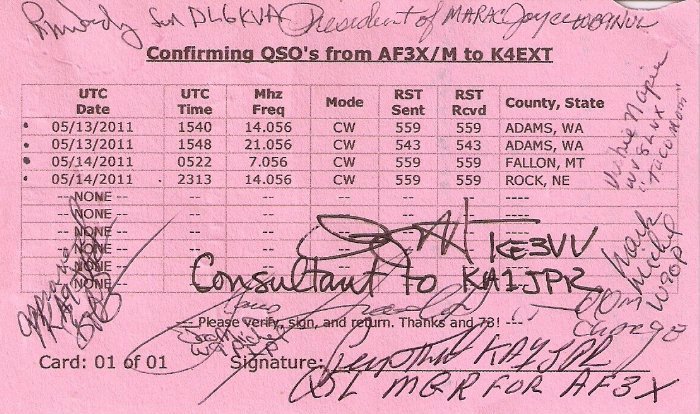 DL6KVA President of MARAC Joyce
Confirming QSO's from AF3X/M to K4EXT
UTC Date UTC Time Mhz Freq Mode RST Sent RST Rcvd County, State
05/13/2011 1540 14.056 CW 559 559 ADAMS, WA
05/13/2011 1548 21.056 CW 543 543 ADAMS, WA
05/14/2011 0522 7.056 CW 559 559 FALLON, MT
05/14/2011 2313 14.056 CW 559 559 ROCK, NE
-- NONE -- -- -- -- -- -- --
-- NONE -- -- -- -- -- --
-- NONE -- -- -- -- --
-- NONE -- -- --
-- NONE --
-- NONE --
KE3VV
Consultant to KA1JPR
"TACO MOM"
Mark
W9OP
--- Please verify, sign, and return. Thanks and 73! ---
Card: 01 of 01 Signature: KA1JPR
QSL MGR FOR AF3X